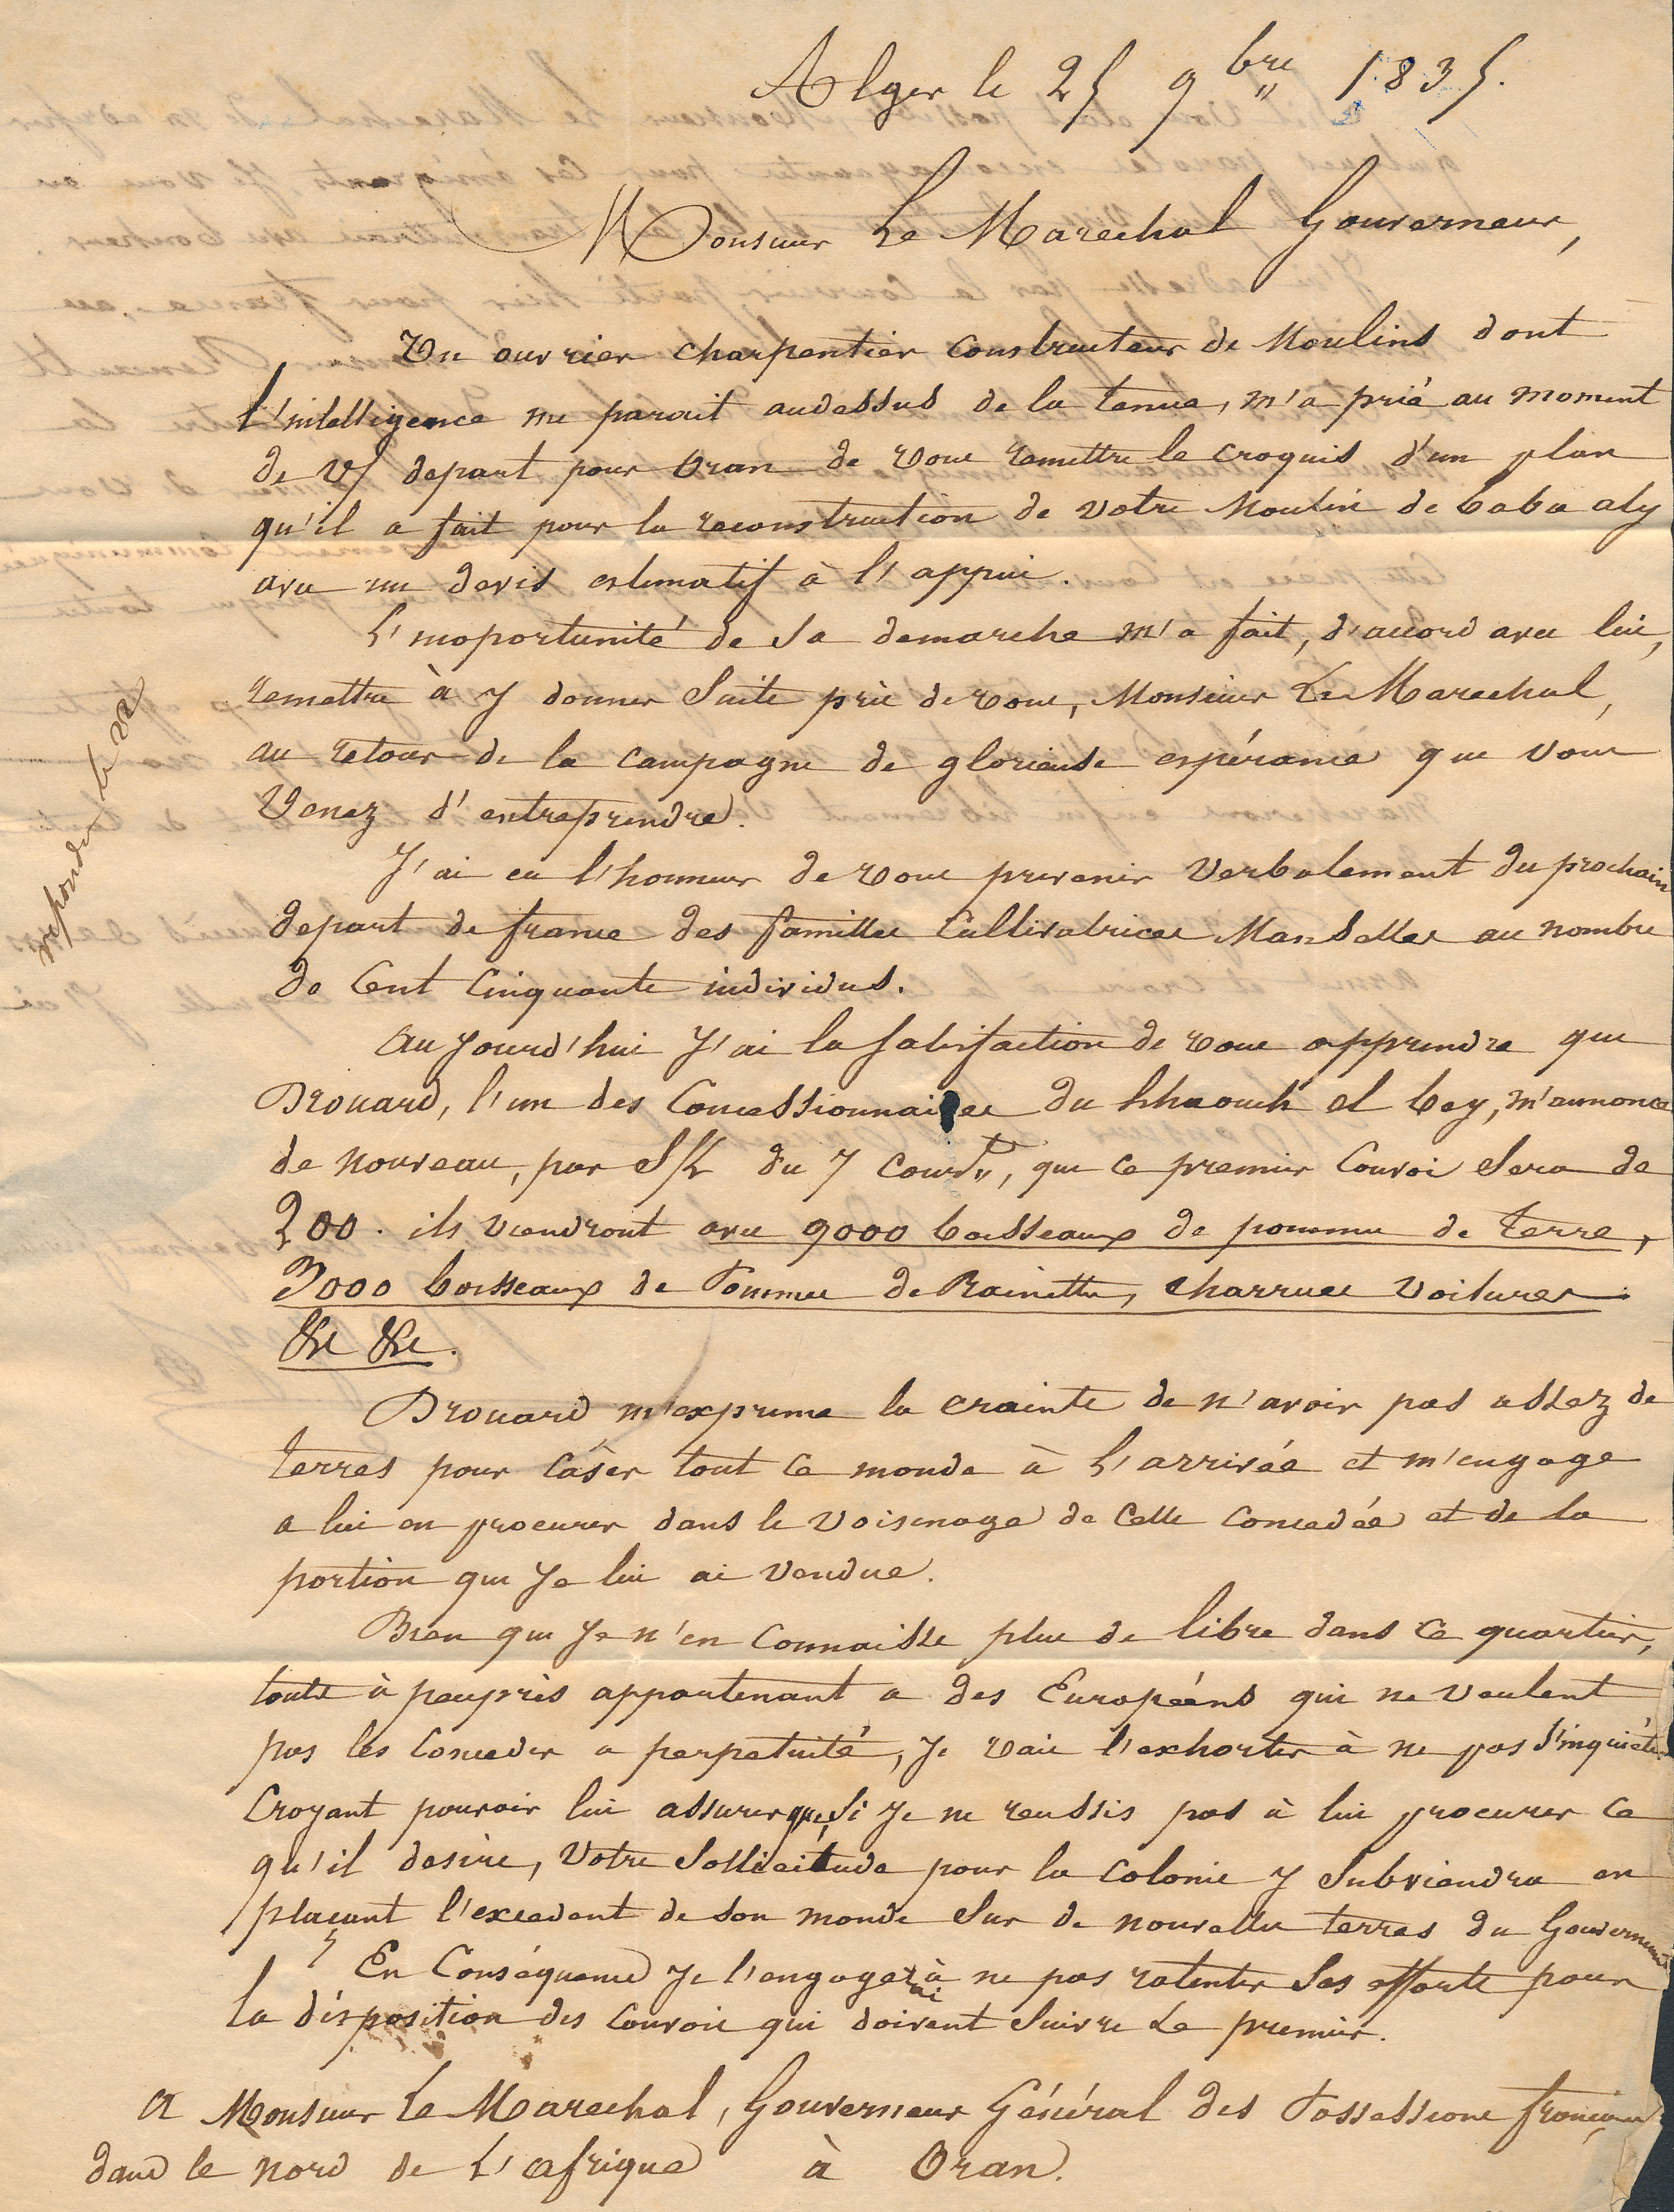 Alger le 25 9bre 1835.
Monsieur Le Marechal Gouverneur,
Un ouvrier charpentier constructeur de Moulins dont
l'intelligence me parait audessus de la tenue, m'a prié au moment
de V/ depart pour Oran de vous remettre le croquis d'un plan
qu'il a fait pour la reconstruction de votre Moulin de baba aly
avec un devis estimatif à l'appui.
L'inoportunité de sa demarche m'a fait, d'accord avec lui,
remettre à y donner suite près de vous, Monsieur Le Marechal,
au retour de la campagne de glorieuse espérance que vous
Venez d'entreprendre.
J'ai eu l'honneur de vous prevenir verbalement du prochain
depart de france des familles Cultivatrices Manselles au nombre
de Cent Cinquante individus.
Aujourd'hui J'ai la satisfaction de vous apprendre que
Drouard, l'un des Concessionnaires du hhaouch el bey, m'annonce
de nouveau, par S/L du 7 courant, que ce premier Convoi sera de
200. ils viendront avec 9000 boisseaux de pommes de terre,
3000 boisseaux de Pommes de Rainettes, charrues voitures
&c &c.
Drouard m'exprime la crainte de n'avoir pas assez de
terres pour câser tout ce monde à l'arrivée et m'engage
a lui en procurer dans le voisinage de celle concedée et de la
portion que Je lui ai vendue.
Bien que Je n'en connaisse plus de libre dans ce quartier,
toute à peuprès appartenant a des Européens qui ne veulent
pas les conceder a perpetuité, Je vais l'exhorter à ne pas s'inquiéter
Croyant pouvoir lui assurer que, si Je ne reussis pas à lui procurer ce
qu'il desire, Votre Sollicitude pour la colonie y subviendra en
plaçant l'excedent de son monde sur de nouvelles terres du Gouvernement
En Conséquence Je l'engagerai à ne pas ralentir ses efforts pour
la disposition des Convois qui doivent suivre Le premier.
A Monsieur Le Marechal, Gouverneur Général des Possessions françaises
dans le nord de L'afrique à Oran.
repondu le 22